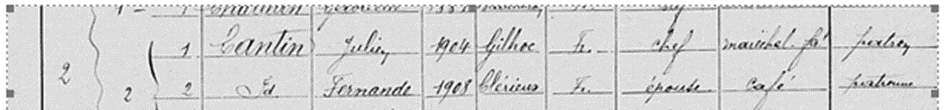 1 Cantin Julien 1904 Gilhoc Fr. chef maréchal-f. patron
2 2 2 Id Fernande 1908 Clérieux Fr. épouse café patronne